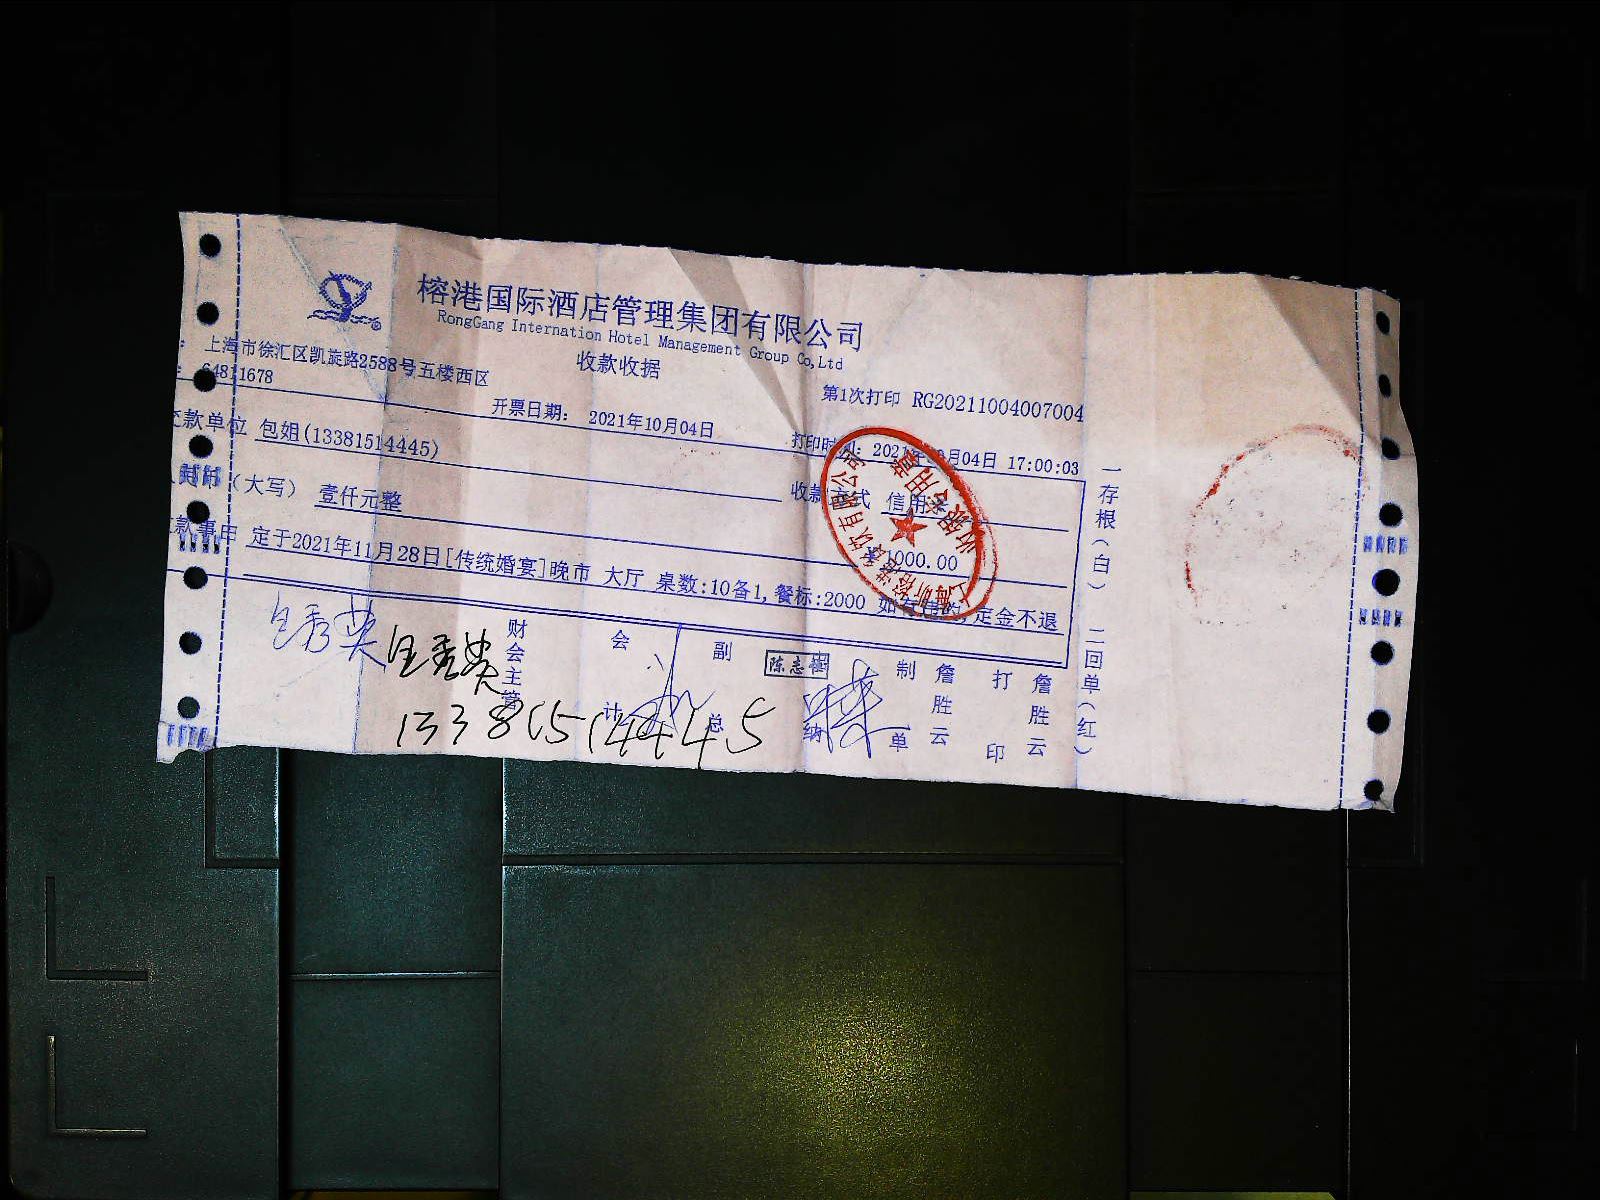 榕港国际酒店管理集团有限公司
RongGang Internation Hotel Management Group Co,Ltd
: 上海市徐汇区凯旋路2588号五楼西区
收款收据
: 64811678
第1次打印 RG20211004007004
开票日期: 2021年10月04日
打印时间: 2021年10月04日 17:00:03
交款单位 包姐(13381514445)
收款方式 信用卡
人民币（大写） 壹仟元整
¥1000.00
收款事由 定于2021年11月28日[传统婚宴]晚市 大厅 桌数:10备1,餐标:2000 如有违约,定金不退
财会主管
会计
副总
陈志
出纳
制单
詹胜云
打印
詹胜云
13381514445
一存根(白) 二回单(红)
收银专用章